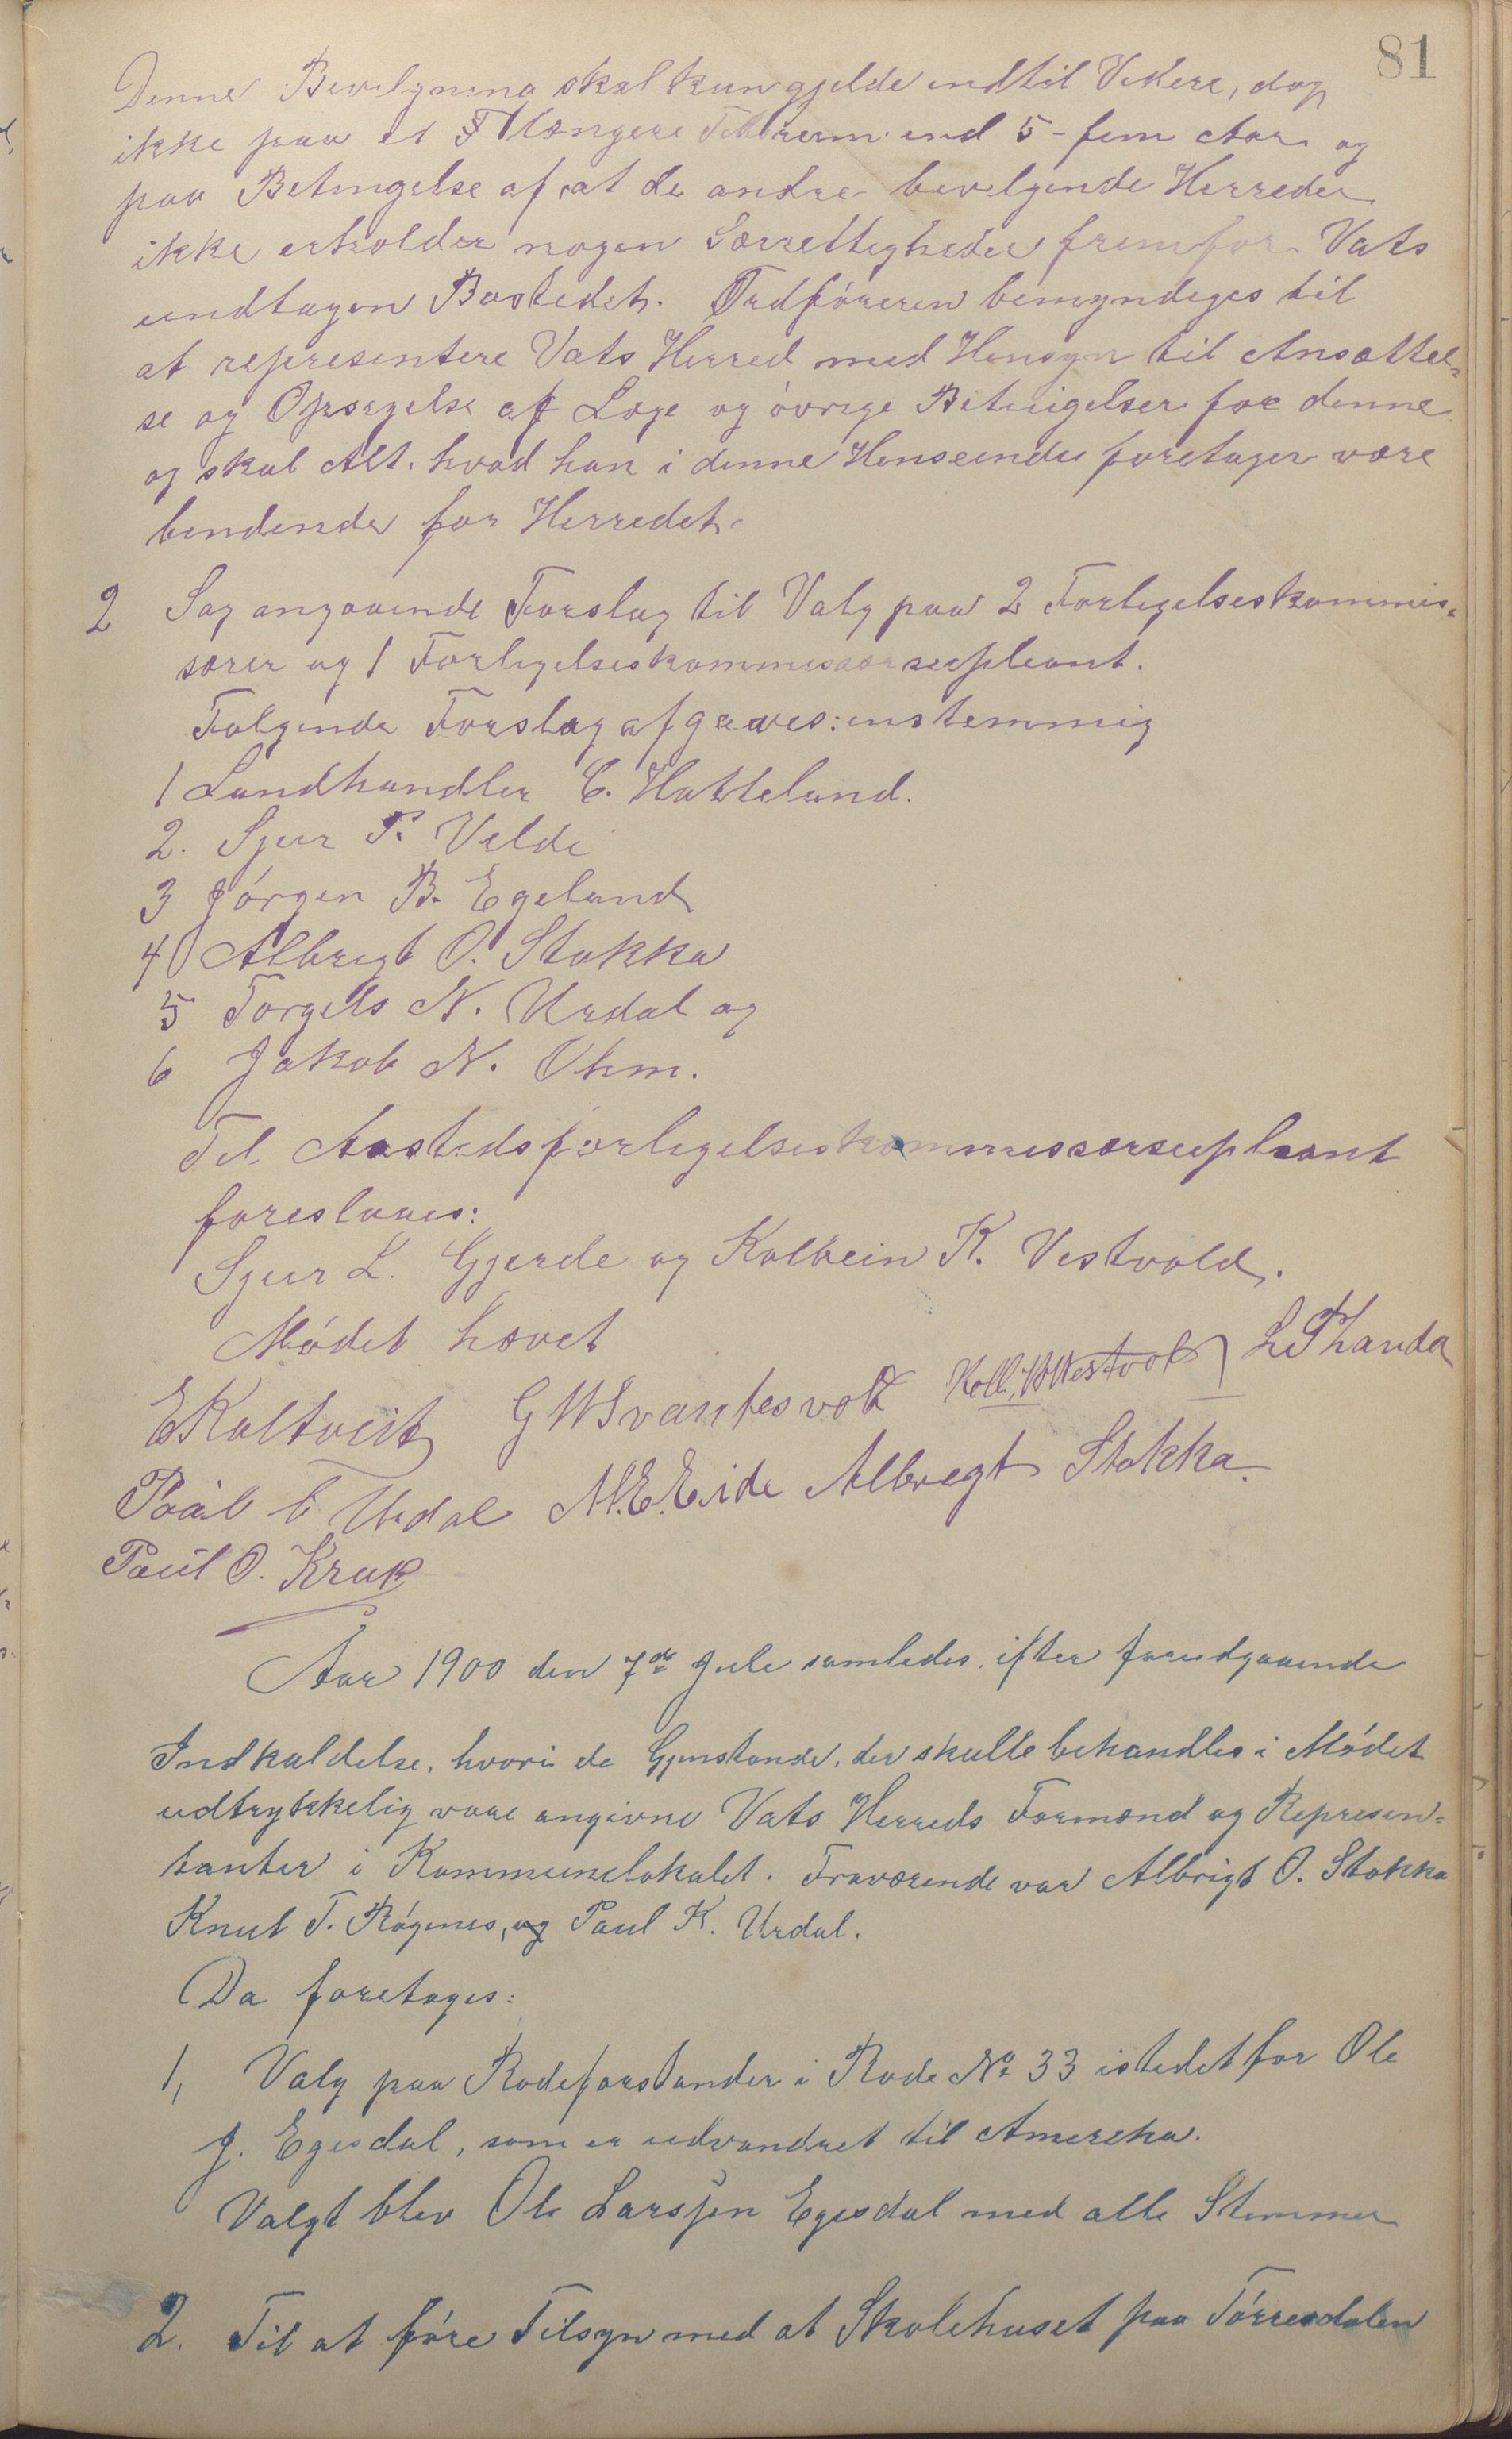 81
Denne Bevilgning skal kun gjelde indtil Videre, dog
ikke paa et længere Tidsrum end 5 - fem Aar og
paa Betingelse af, at de andre bevilgende Herreder
ikke erholder nogen Særrettigheder fremfor Vats
undtagen Bostedet. Ordføreren bemyndiges til
at representere Vats Herred med Hensyn til Ansættel-
se og Opsigelse af Læge og øvrige Betingelser for denne
og skal Alt, hvad han i denne Henseende foretager være
bindende for Herredet.
2 Sag angaaende Forslag til Valg paa 2 Forligelseskommis-
særer og 1 Forligelseskommissærsupleant.
Følgende Forslag afgaves: enstemmig
1 Landhandler C. Hatteland.
2. Sjur P. Velde
3 Jørgen B. Egeland
4 Albrigt O. Stokka
5 Torgels N. Urdal og
6 Jakob N. Ohm.
Til Aastedsforligelseskommissærsupleant
foreslaaes:
Sjur L. Gjerde og Kolbein K. Vestvold.
Mødet hævet
EKaltveit G W Svantesvold Kolb. K Westvold L P Landa
Paal C Urdal M.E.Eide Albregt Stokka.
Paul O. Krak
Aar 1900 den 7de Juli samledes efter forudgaaende
Indkaldelse, hvori de Gjenstande, der skulle behandles i Mødet
udtrykkelig vare angivne Vats Herreds Formænd og Represen-
tanter i Kommunelokalet. Fraværende var Albrigt O. Stokka
Knut T. Røgenes, og Paul K. Urdal.
Da foretoges:
1, Valg paa Rodeforstander i Rode No 33 istedetfor Ole
J. Egesdal, som er udvandret til Amerika.
Valgt blev Ole Larssen Egesdal med alle Stemmer
2. Til at føre Tilsyn med at Skolehuset paa Tørresdalen